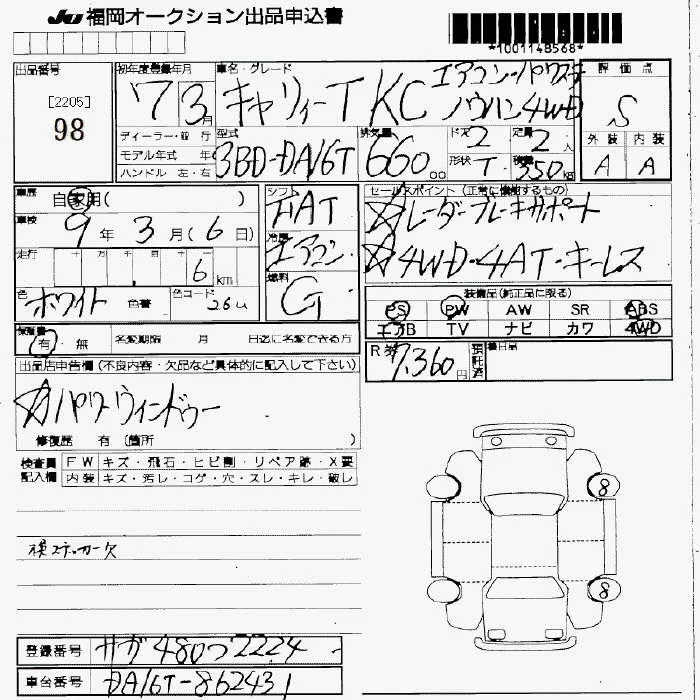 JU 福岡オークション出品申込書
*1001148568*
出品番号 初年度登録年月 車名・グレード 評価点
[2205]
98
7年3月 キャリィーT KC エアコン・パワステ
ノウハン 4WD
S
ディーラー・並行 型式 排気量 ドア 定員 外装 内装
モデル年式 年
ハンドル 左・右
3BD-DA16T 660 cc 2 2人
形状 T 積載 350kg A A
車歴 自家用( ) シフト FAT セールスポイント(正常に機能するもの)
車検 9年3月(6日) 冷房 エアコン ☆レーダーブレーキサポート
☆4WD・4AT・キーレス
走行 十 万 千 百 十 一
6km 燃料 G
色 ホワイト 色番 色コード 26U
装備品(純正品に限る)
PS PW AW SR ABS
エアB TV ナビ カワ 4WD
保証書 有・無 名変期限 月 日迄に名変できる方
R券 7,360円 預託済 備日品
出品店申告欄(不良内容・欠品など具体的に記入して下さい)
☆パワーウィンドゥー
修復歴 有(箇所 )
検査員 FW キズ・飛石・ヒビ割・リペア跡・X要
記入欄 内装 キズ・汚レ・コゲ・穴・スレ・キレ・破レ
8
8
検ステッカー欠
登録番号 サガ480つ2224
車台番号 DA16T-862431